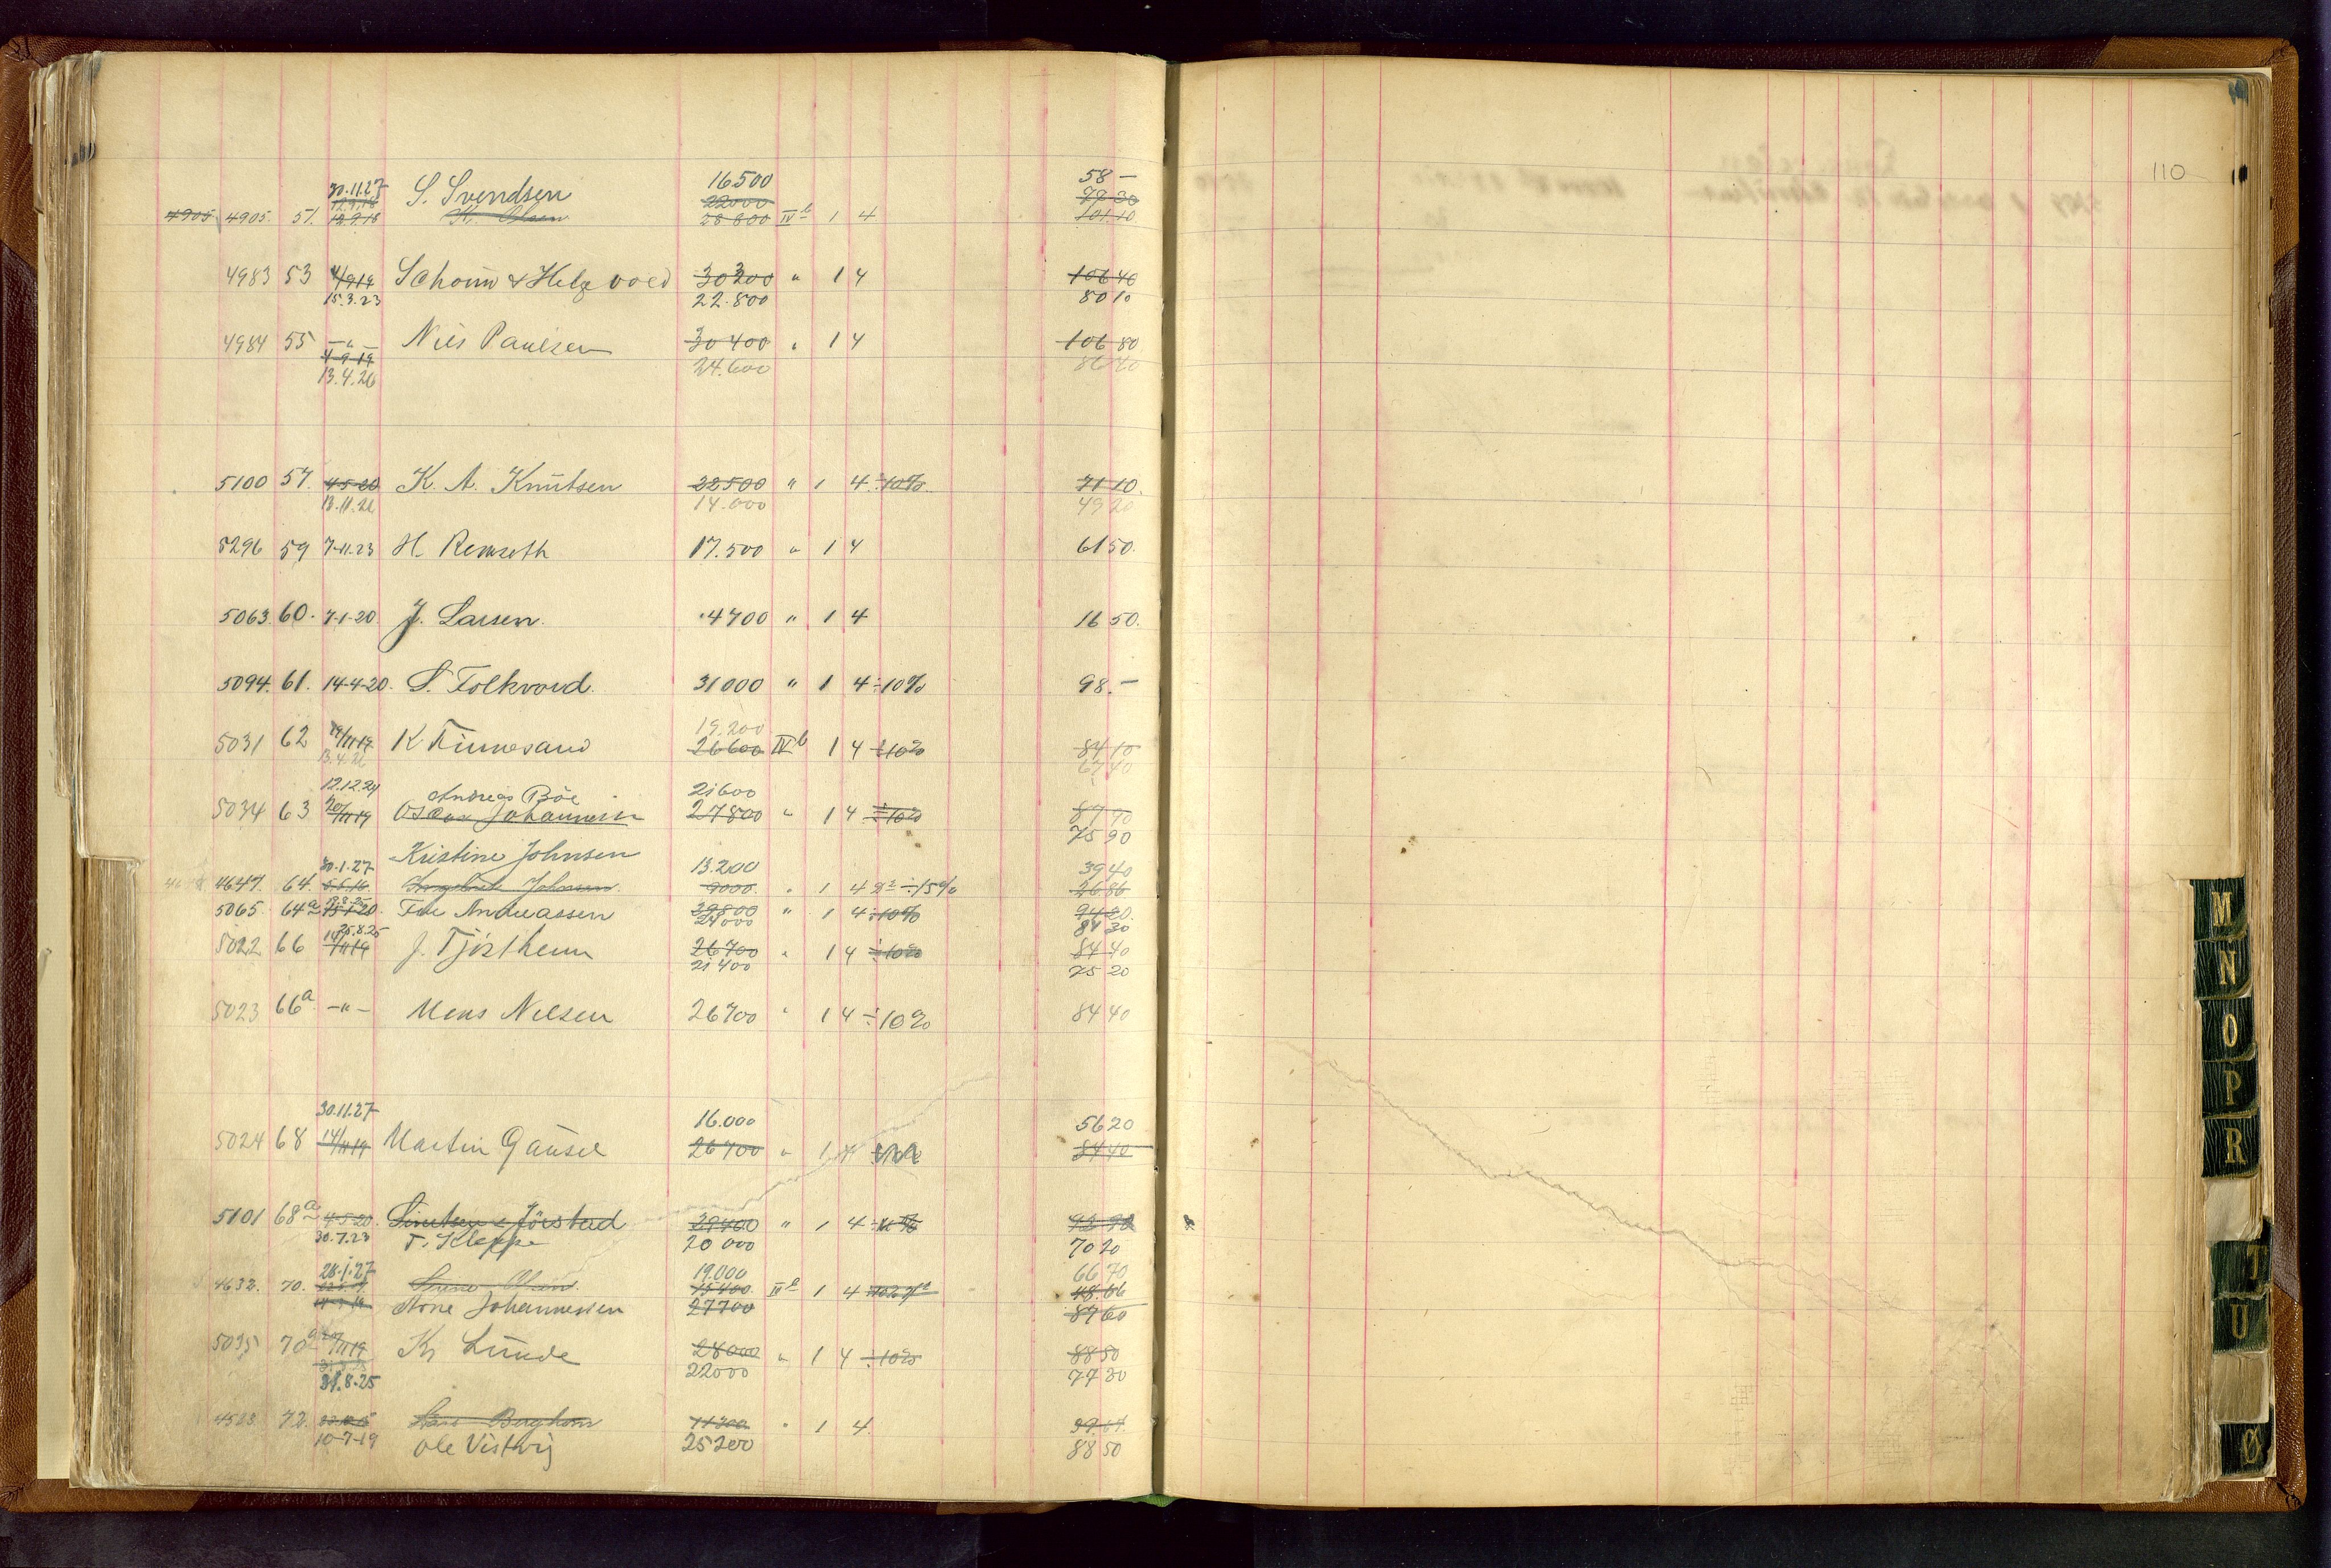 110
30.11.27 S. Svendsen 16500 58 –
12.9.18 22000 77 30
4905 4905. 51. 12.9.18 K. Olsen 28 800 IVb 1 4 101.10
4983 53 4/9 19 Schou & Helgevold 30300 " 1 4 106 40
15.3.23 22.800 80 10
4984 55 – " – Nils Paulsen 30400 " 1 4 106 80
4-9-19
13.4.26 24.600 86 40
5100 57. 4-5-20 K. A. Knutsen 22500 " 1 4 ÷10% 71 10.
13.11.26 14.000 49 20
5296 59 7-11.23 H. Remseth 17.500 " 1 4 61 50.
5063. 60. 7-1-20 J. Larsen. 4700 " 1 4 16 50.
5094. 61. 14-4-20. S. Folkvord. 31000 " 1 4 ÷10% 98. –
19.200
5031 62 19/11 19. K Finnesand 26600 IVb 1 4 ÷10% 84 10
13.4.26 67 40
12.12.24 Andreas Böe 21600
5034 63 20/11 19 Oscar Johannesen 27800 " 1 4 ÷10% 87 90
75 90
Kristine Johnsen
30.1.27 13.200 39 40
4647. 64. 6.6.16 Johnsen. 9000. " 1 4 ÷15% 26 86
5065. 64a 15-1-20. Tore Andreassen 29800 " 1 4 ÷10% 94 20.
24000 84 30
25.8.25
5022 66 14/11 19 J. Tjöstheim 26700 " 1 4 ÷10% 84 40
21400 75 20
5023 66a – " – Mons Nilsen 26700 " 1 4 ÷10% 84 40
30.11.27 16.000 56 20
5024 68 14/11 19 Martin Gausel 26700 " 1 4 84 40
5101 68a 4-5-20. Simonsen & Jörstad 29400 " 1 4 ÷10% 92 90
30.7.23 T. Kleppe 20 000 70 20
28.1.27 19.000 66 70
4632. 70. Olsen. 15400 IVb 1 4 48.66
Arne Johannessen 27700 87 60
5035 70a 20/11 19 Kr Lunde 28000 " 1 4 ÷10% 88 50
31.8.25 22000 77 30
4523 72. Lars Berghom 11300 " 1 4. 39.64
10-7-19 Ole Vistvig 25200 88 50
M
N
O
P
R
T
U
Ø